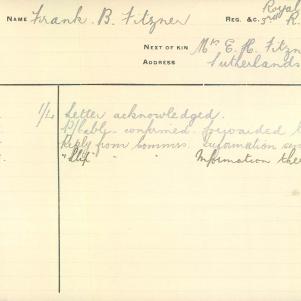 NAME Frank. B. Fitzner REG. &C. Royal
3rd R.
NEXT OF KIN Mrs E. H. Fitzn
ADDRESS Sutherlands
1/4 Letter acknowledged.
confirmed. forwarded
Reply from commrs. Information sen
" " " Information the